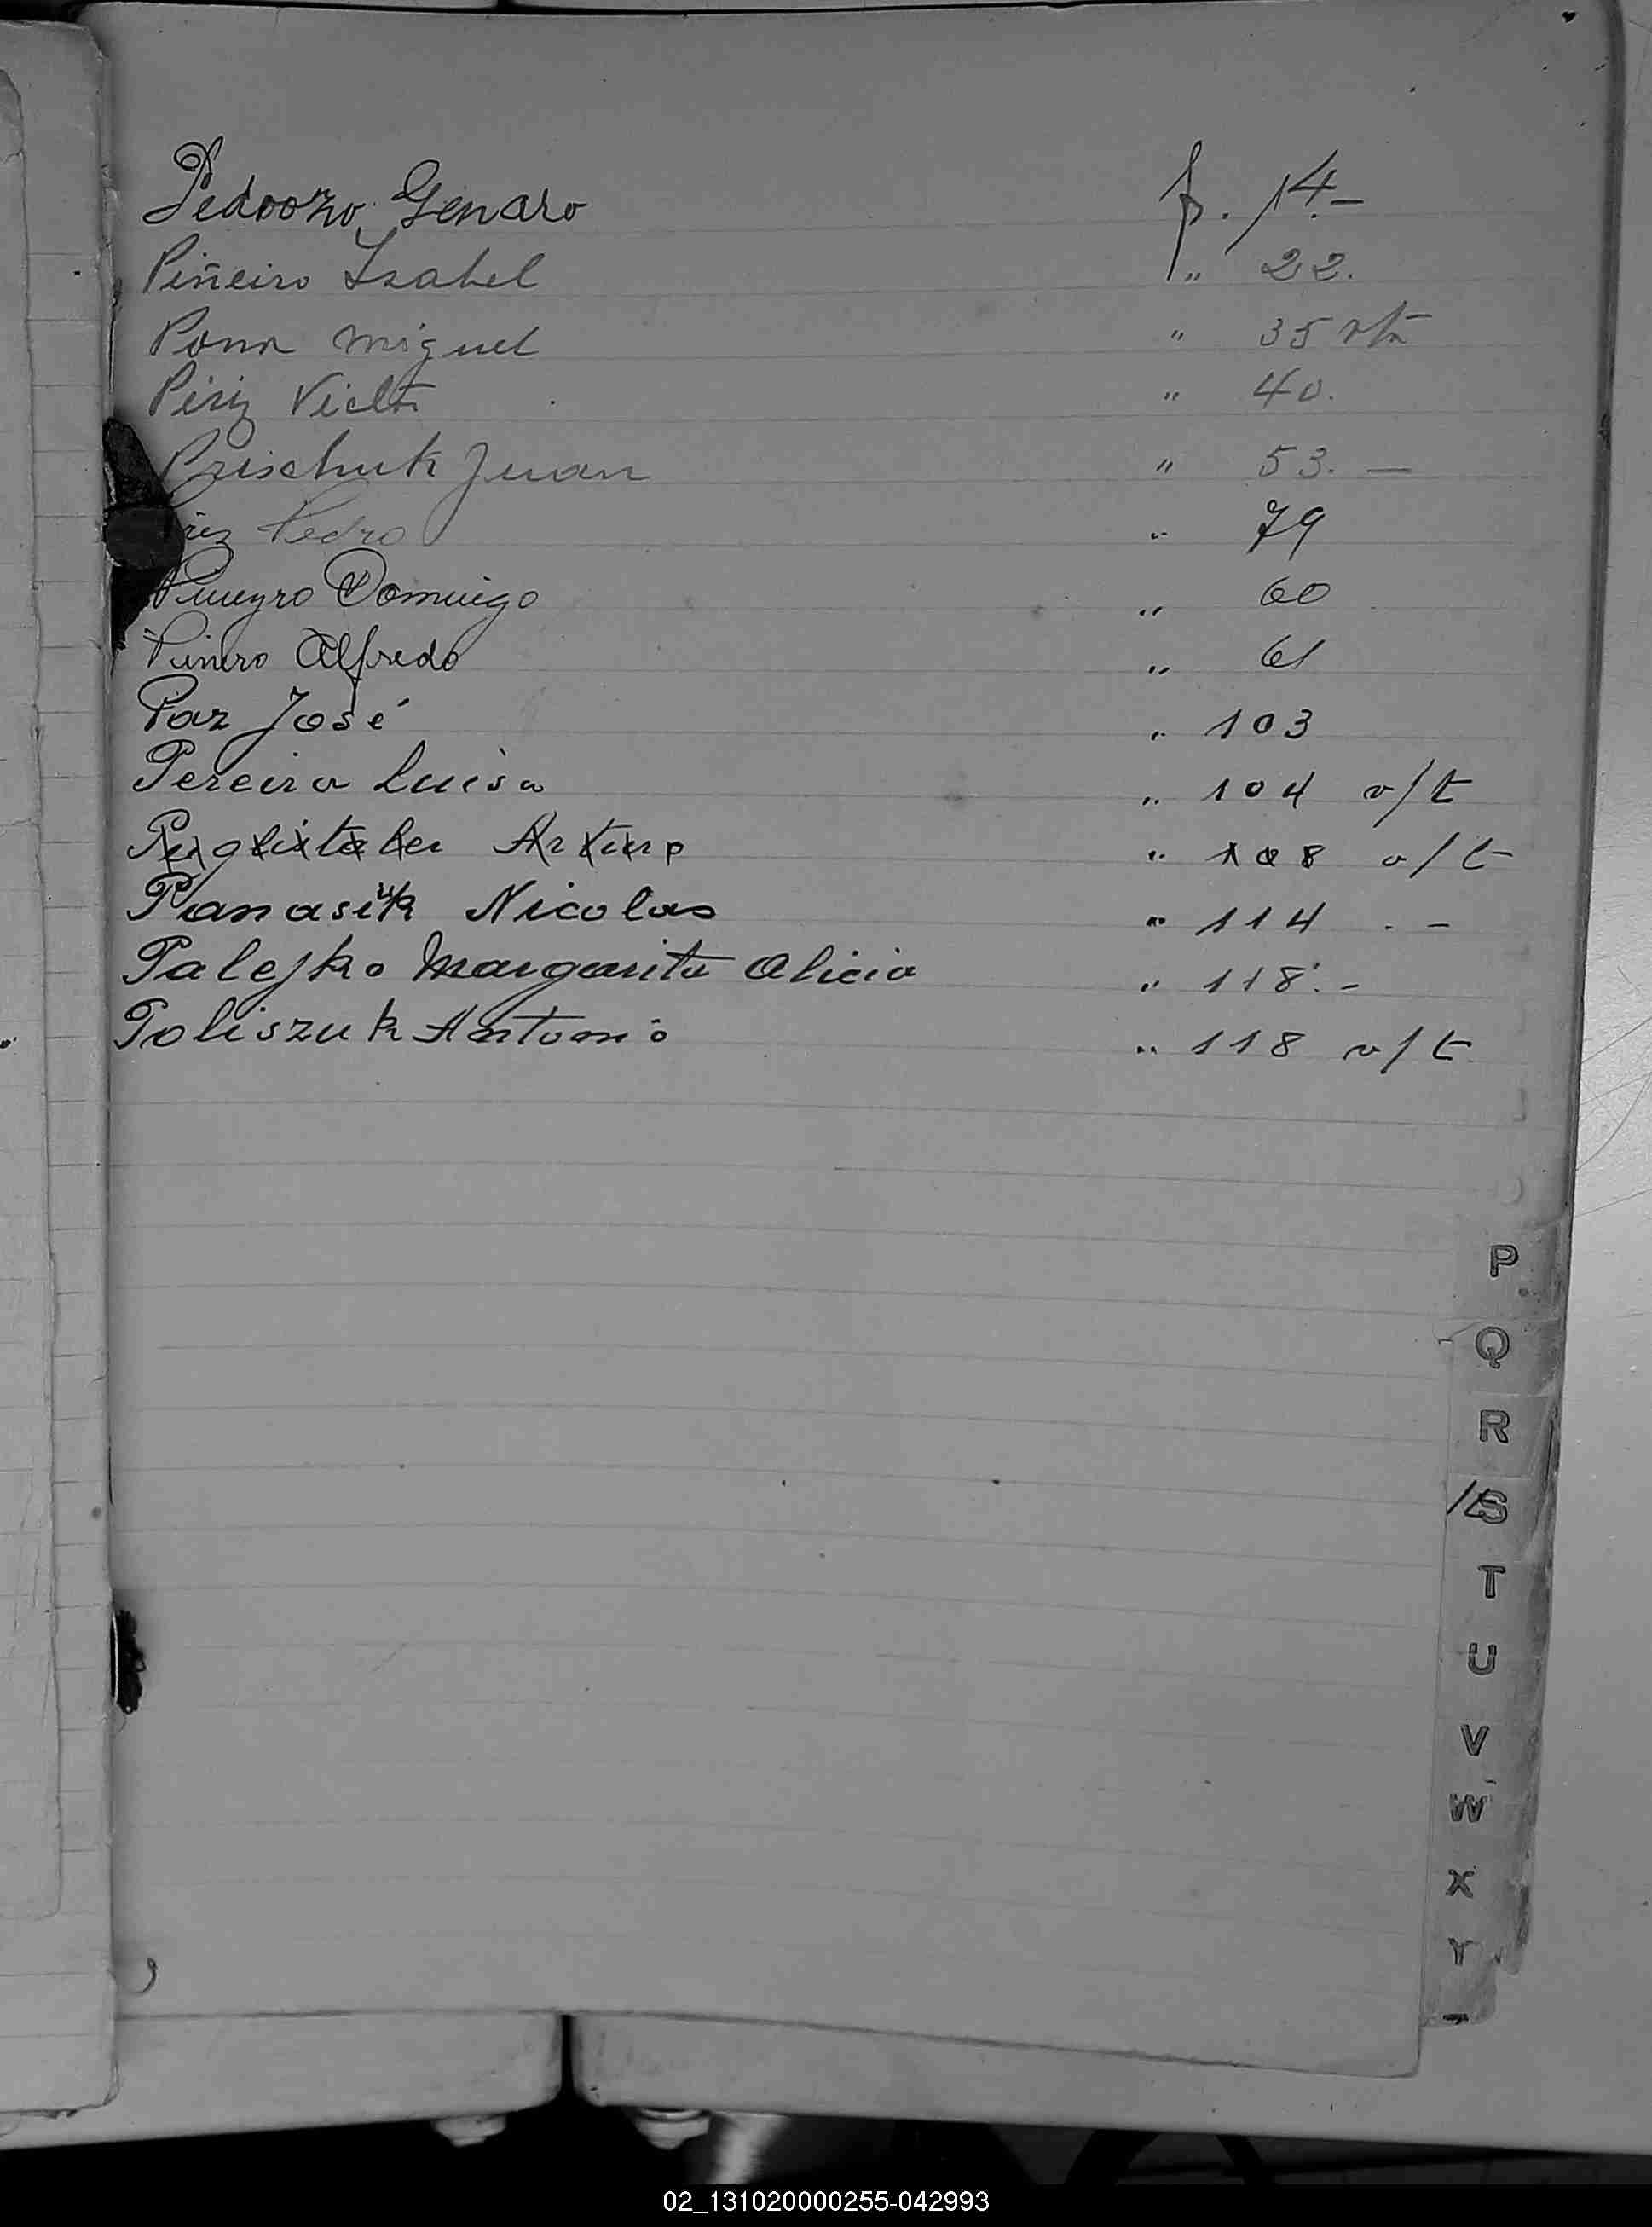 Pedrozo Genaro f. 14.-
Piñeiro Isabel " 22.
Miguel " 35 vta
Piriz Victor " 40.
Prischuk Juan " 53. —
Pedro " 79
Pineyro Domingo " 60
Pineiro Alfredo " 61
Paz José " 103
Pereira Luisa " 104 v/t
Arturo " 108 v/t
Panasiuk Nicolas " 114 . -
Palejko Margarita Alicia " 118. -
Poliszuk Antonio " 118 v/t
P
Q
R
S
T
U
V
W
X
Y
02_131020000255-042993